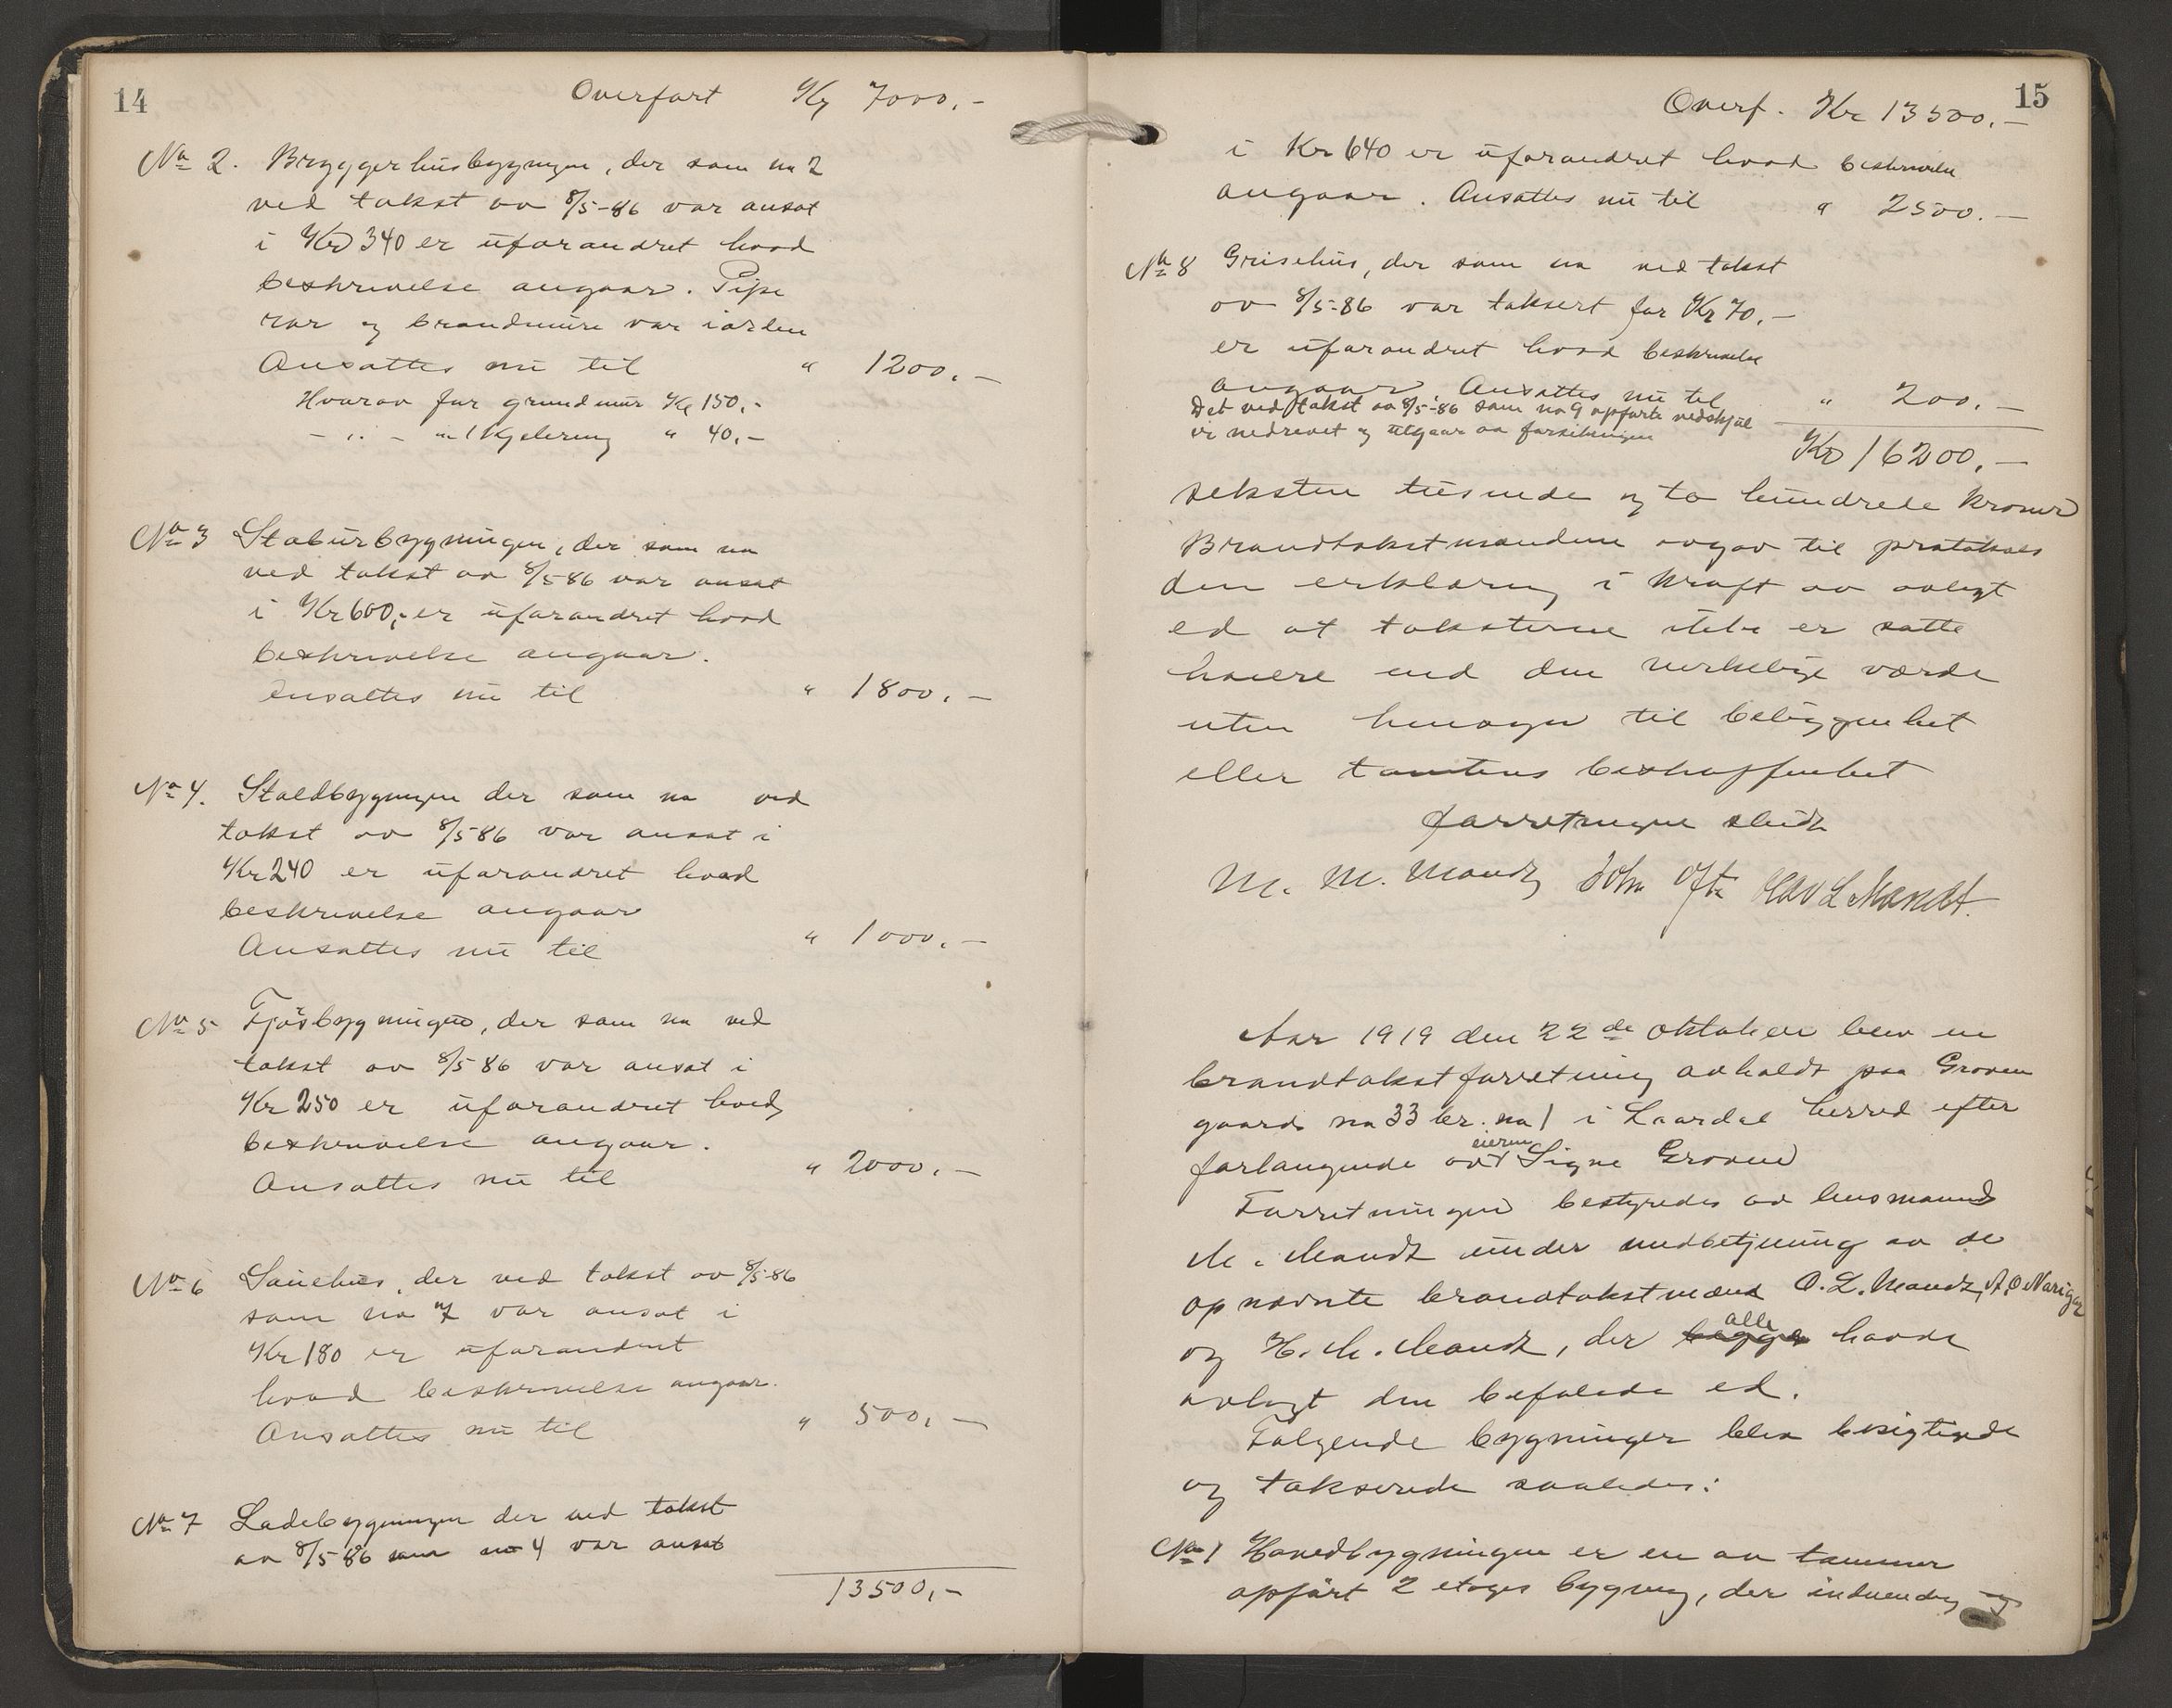 14
Overført Kr 7000,-
No 2. Bryggerhusbygningen, der som no 2
ved takst av 8/5-86 var ansat
i Kr 340 er uforandret hvad
beskrivelse angaar. Pipe
rør og brandmure var iorden
Ansattes nu til " 1200,-
Hvorav for grundmur Kr 150,-
- " - " 1 Kjelering " 40,-
No 3 Staburbygningen, der som no
ved takst av 8/5 86 var ansat
i Kr 600,- er uforandret hvad
beskrivelse angaar.
Ansattes nu til " 1800,-
No 4. Staldbygningen der som no ved
takst av 8/5 86 var ansat i
Kr 240 er uforandret hvad
beskrivelse angaar
Ansattes nu til " 1000,-
No 5 Fjøsbygningen, der som no ved
takst av 8/5 86 var ansat i
Kr 250 er uforandret hvad
beskrivelse angaar.
Ansattes nu til " 2000,-
No 6 Sauehus, der ved takst av 8/5-86
som no 7 var ansat i
Kr 180 er uforandret
hvad beskrivelse angaar.
Ansattes nu til " 500,-
No 7 Ladebygningen der ved takst
av 8/5 86 som no 4 var ansat
13500,-
15
Overf. Kr 13500,-
i Kr 640 er uforandret hvad beskrivelse
angaar. Ansattes nu til " 2500.-
No 8 Grisehus, der som no ved takst
av 8/5-86 var taksert for Kr 70,-
er uforandret hvad beskrivelse
angaar. Ansattes nu til " 200,-
Det ved takst av 8/5-86 som no 9 opførte vedskjul
er nedrevet og utgaar av forsikringen
Kr 16200,-
seksten tusende og to hundrede kroner
Brandtakstmændene avgav til protokols
den erklæring i kraft av avlagt
ed at taksterne ikke er satte
høiere end den virkelige værdi
uten hensyn til beliggenhet
eller tomtens beskaffenhet
forretningen sluttet
M. M. Mandt John Ofte Olav L Mandt.
Aar 1919 den 22de oktober blev en
brandtakstforretning avholdt paa Groven
gaards no 33 br. no 1 i Laardal herred efter
forlangende av eieren Signe Groven
Forretningen bestyredes av lensmand
M. Mandt under medbetjening av de
opnævnte brandtakstmænd O. L. Mandt, A. O Narigar
og H. M. Mandt, der begge alle havde
avlagt den befalede ed.
Følgende bygninger blev besigtigede
og takserede saaledes:
No 1 Hovedbygningen er en av tømmer
opført 2 etages bygning, der indvendig og